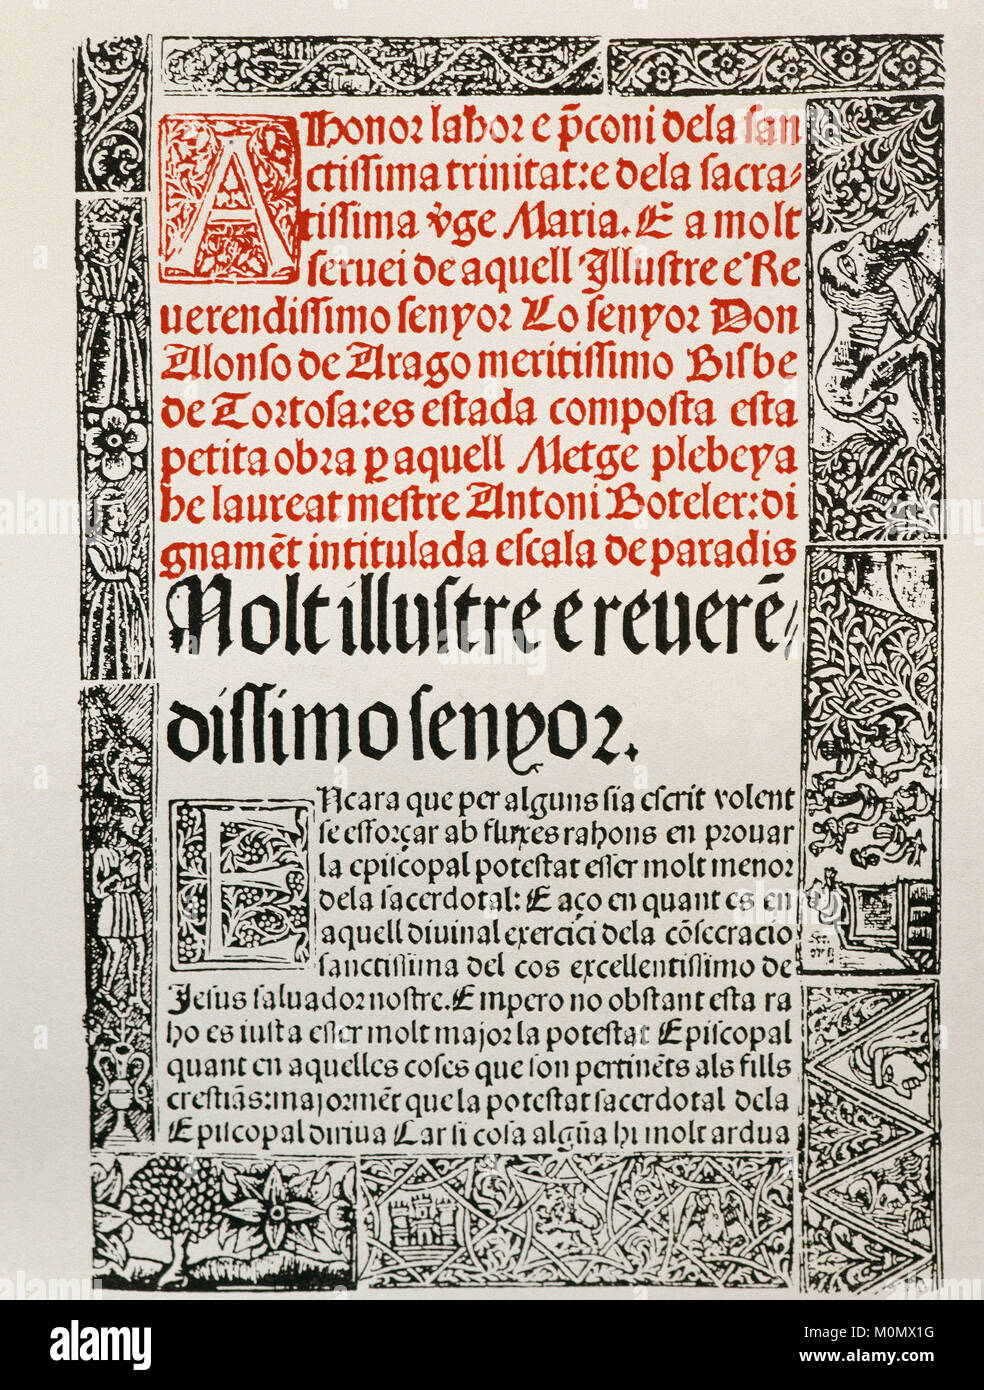 A Honor lahor e p̄coni dela san
ctissima trinitat:e dela sacra⸗
tissima v̄ge Maria. E a molt
seruei de aquell Illustre e Re
uerendissimo senyor Lo senyor Don
Alonso de Arago meritissimo Bisbe
de Tortosa: es estada composta esta
petita obra ꝑ aquell Metge plebeya
he laureat mestre Antoni Boteler: di
gnamēt intitulada escala de paradis
Molt illustre e reuerē/
dissimo senyor.
ENcara que per alguns sia escrit volent
se esforçar ab fluxes rahons en prouar
la episcopal potestat esser molt menor
dela sacerdotal: E aço en quant es en
aquell diuinal exercici dela cōsecracio
sanctissima del cos excellentissimo de
Jesus saluador nostre. Empero no obstant esta ra
ho es iusta esser molt major la potestat Episcopal
quant en aquelles coses que son pertinēts als fills
crestiās: majormēt que la potestat sacerdotal dela
Episcopal diriua Car si cosa algūa hi molt ardua
alamy
alamy stock photo
M0MX1G
www.alamy.com